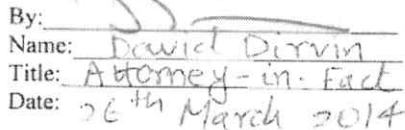 By:
Name: David Dirvin
Title: Attorney-in-Fact
Date: 26th March 2014